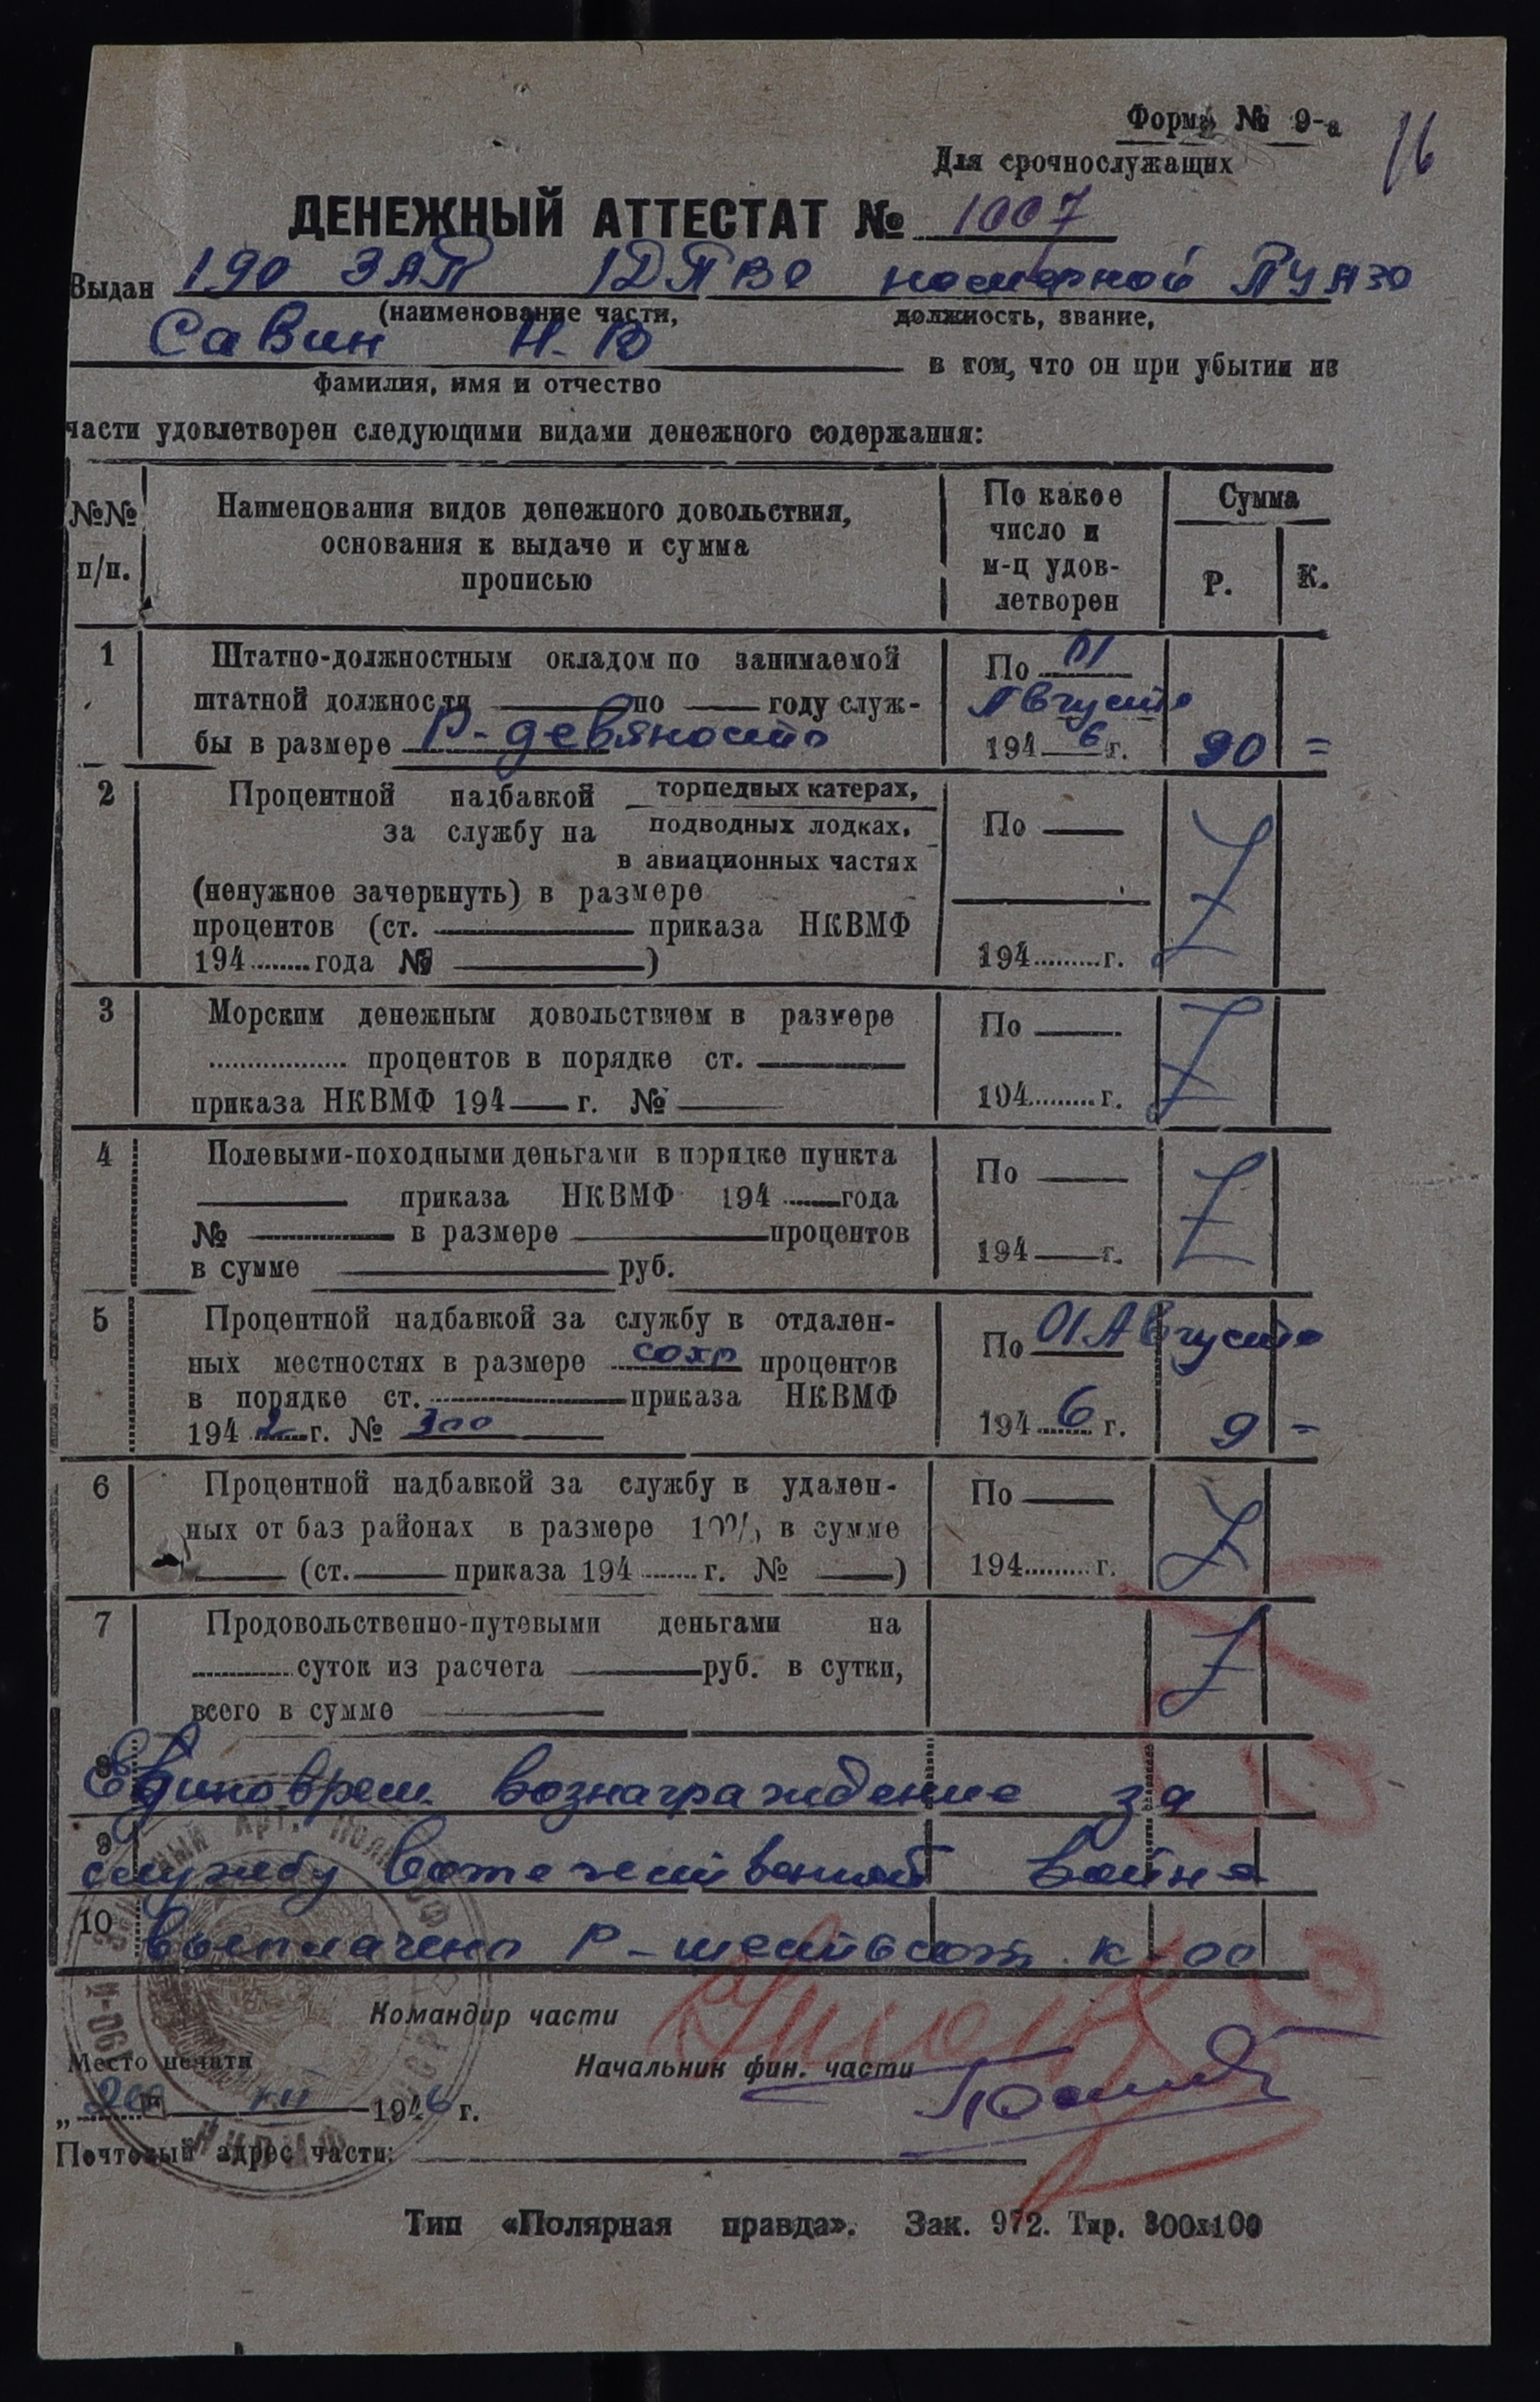 Форма № 9-а
16
Для срочнослужащих
ДЕНЕЖНЫЙ АТТЕСТАТ № 1007
Выдан 190 ЗАП 1ДПВО номерной ПУАЗО
(наименование части, должность, звание,
Савин Н. В в том, что он при убытии из
фамилия, имя и отчество
части удовлетворен следующими видами денежного содержания:
№№ п/п.
Наименования видов денежного довольствия,
основания к выдаче и сумма
прописью
По какое
число и
м-ц удов-
летворен
Сумма
Р. К.
1 Штатно-должностным окладом по занимаемой
штатной должности по году служ-
бы в размере Р- девяносто
По 01
Августа
194 6 г. 90 =
2 Процентной надбавкой торпедных катерах,
за службу на подводных лодках,
в авиационных частях
(ненужное зачеркнуть) в размере
процентов (ст. приказа НКВМФ
194 года № )
По
194 г.
3 Морским денежным довольствием в размере
процентов в порядке ст.
приказа НКВМФ 194 г. №
По
194 г.
4 Полевыми-походными деньгами в порядке пункта
приказа НКВМФ 194 года
№ в размере процентов
в сумме руб.
По
194 г.
5 Процентной надбавкой за службу в отдален-
ных местностях в размере сохр процентов
в порядке ст. приказа НКВМФ
194 2 г. № 300
По 01 Августа
194 6 г. 9 -
6 Процентной надбавкой за службу в удален-
ных от баз районах в размере 10%, в сумме
(ст. приказа 194 г. № )
По
194 г.
7 Продовольственно-путевыми деньгами на
суток из расчета руб. в сутки,
всего в сумме
8 Единоврем. вознаграждение за
9 службу вотечественной войне
10 выплачено Р - шестьсот к - 00
Командир части
Место печати
Начальник фин. части
194 6 г.
Почтовый адрес части:
Тип «Полярная правда». Зак. 972. Тир. 300х100